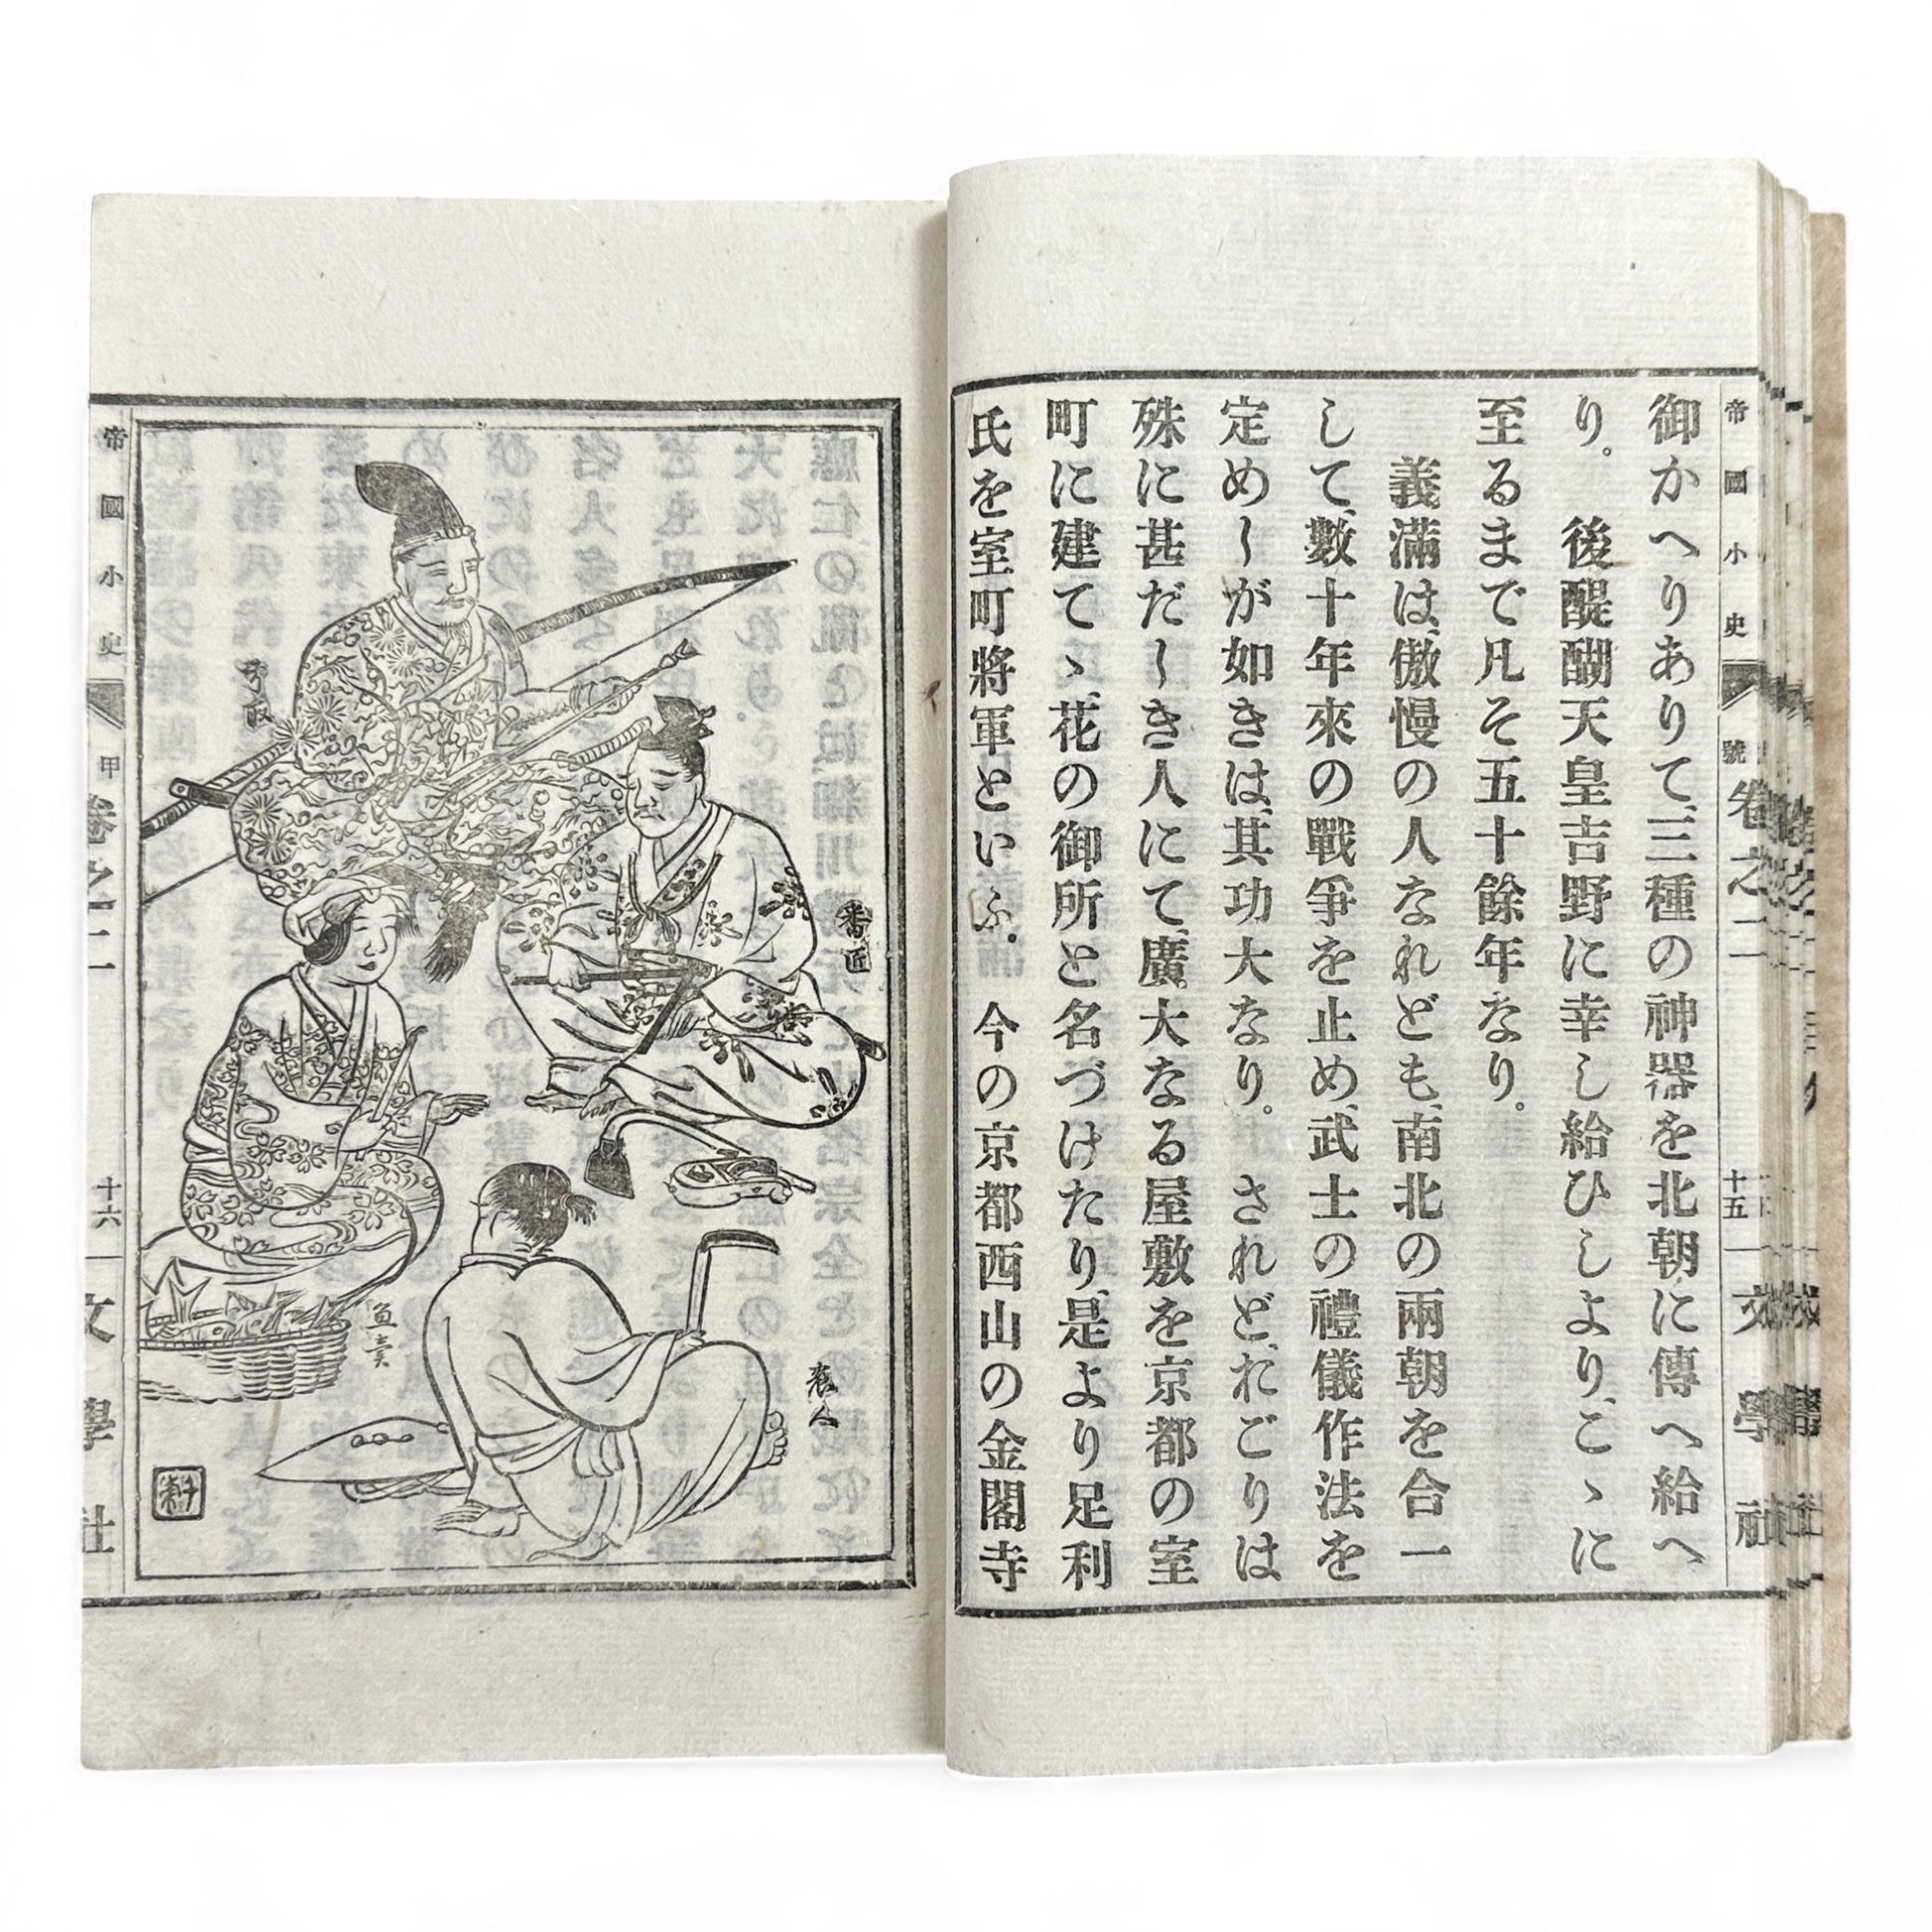 帝國小史 號 卷之二 十五 文學社
御かへりありて、三種の神器を北朝に傳へ給へ
り。　後醍醐天皇吉野に幸し給ひしより、こゝに
至るまで凡そ五十餘年なり。
義滿は、傲慢の人なれども、南北の兩朝を合一
して、數十年來の戰爭を止め、武士の禮儀作法を
定めしが如きは、其功大なり。　されど、おごりは
殊に甚だしき人にて、廣大なる屋敷を京都の室
町に建てゝ、花の御所と名づけたり、是より足利
氏を室町將軍といふ。　今の京都西山の金閣寺
弓取
番匠
魚賣
農人
帝國小史 甲 卷之二 十六 文學社